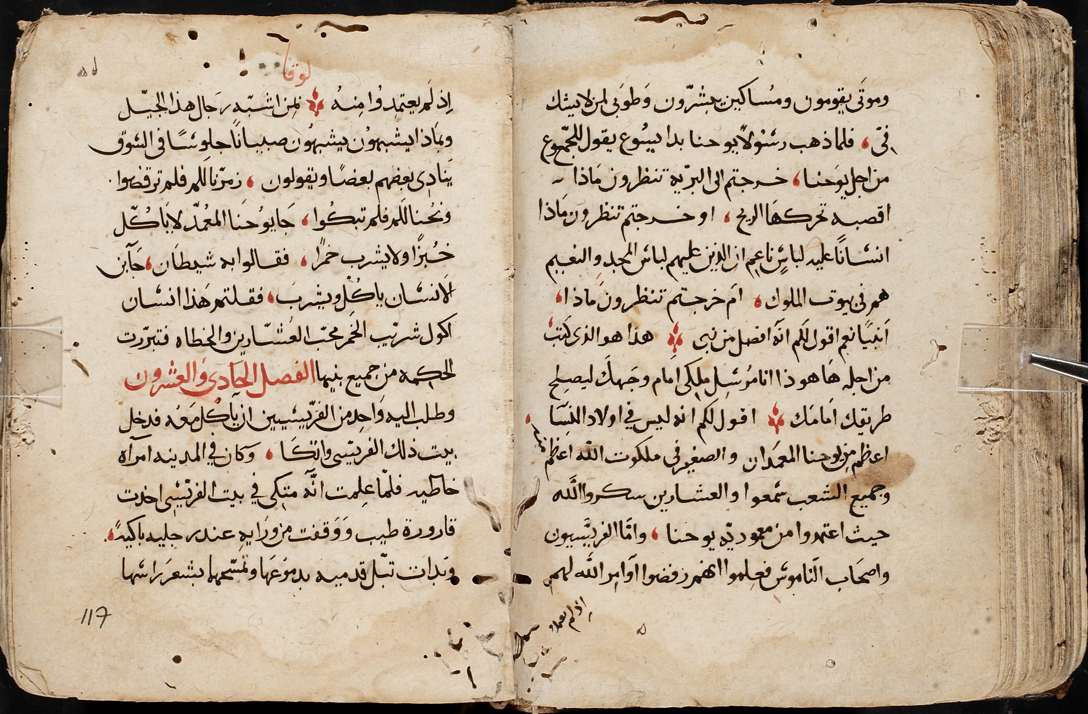 وموتى يقومون ومساكين يبشرون وطوبى لمن لا يشك
فيّ، فلما ذهب رسولا يوحنا بدا يسوع يقول للجموع
من اجل يوحنا، خرجتم الى البريه تنظرون ماذا
اقصبه تحركها الريح، او خرجتم تنظرون ماذا
انسانا عليه لباس ناعم ان الذين عليهم لباس المجد والنعيم
هم في بيوت الملوك، ام خرجتم تنظرون ماذا،
انبيا نعم اقول لكم انه افضل من نبى هذا هو الذى كتب
من اجله هاهوذا انا مرسل ملكى امام وجهك ليصلح
طريقك امامك اقول لكم انه ليس في اولاد النسا
اعظم من يوحنا المعمدان والصغير في ملكوت الله اعظم منه
وجميع الشعب سمعوا والعشارين شكروا الله
حيث اعتمدوا من معموديه يوحنا، وامّا الفريسيون
واصحاب الناموس فعلموا انهم رفضوا اوامر الله لهم
اذ لم يعتمدوا
لوقا
اذ لم يعتمدوا منه لمن اشبه رجال هذا الجيل
وبماذا يشبهون يشبهون صبيانا جلوسا في السوق
ينادى بعضهم بعضا ويقولون، زمرنا لكم فلم ترقصوا
ونحنا لكم فلم تبكوا، جا يوحنا المعمد لا ياكل
خبزا ولا يشرب خمرا، فقالوا به شيطان، جا ابن
الانسان ياكل ويشرب، فقلتم هذا انسان
اكول شريب الخمر محب العشارين والخطاه فتبررت
الحكمه من جميع بنيها الفصل الحادى والعشرون
وطلب اليه واحد من الفريسيين ان ياكل معه فدخل
بيت ذلك الفريسى واتكا، وكان في المدينه امرآه
خاطيه فلما علمت انه متكى في بيت الفريسى اخذت
قارورة طيب ووقفت من ورايه عند رجليه باكية،
وبدات تبل قدميه بدموعها وتمسحهما بشعر راسها
117